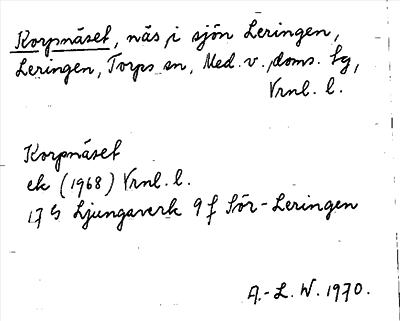 Korpnäset, näs i sjön Leringen,
Leringen, Torps sn, Med. v. doms. tg,
Vrnl. l.
Korpnäset
ek (1968) Vrnl. l.
17 G Ljungaverk 9 f Sör-Leringen
A.-L. W. 1970.